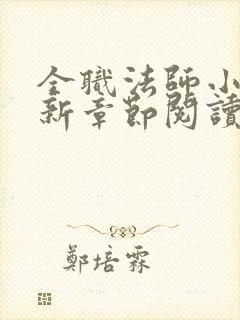 全職法師小
新章節閱讀
鄭培霖